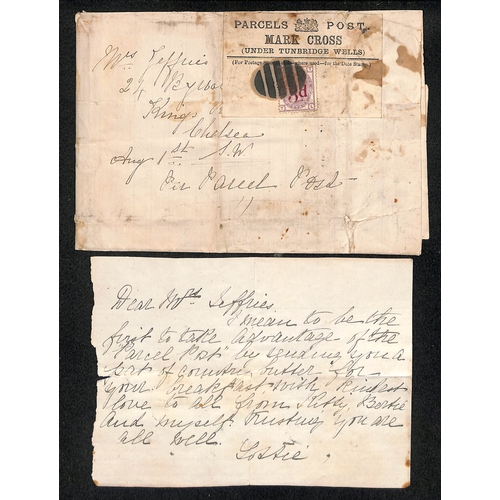 PARCELS POST.
MARK CROSS
(UNDER TUNBRIDGE WELLS)
(For Postage Stamps used—for the Date Stamp.)
3d
Mrs Jeffries
24
Kings
Chelsea
Aug 1st S.W
Per Parcel Post
Dear Mrs Jeffries
I mean to be the
first to take advantage of the
"Parcel Post" by sending you a
pat of country butter for
your breakfast with kindest
love to all from Kitty, Bertie
and myself. Trusting you are
all well.
Lottie